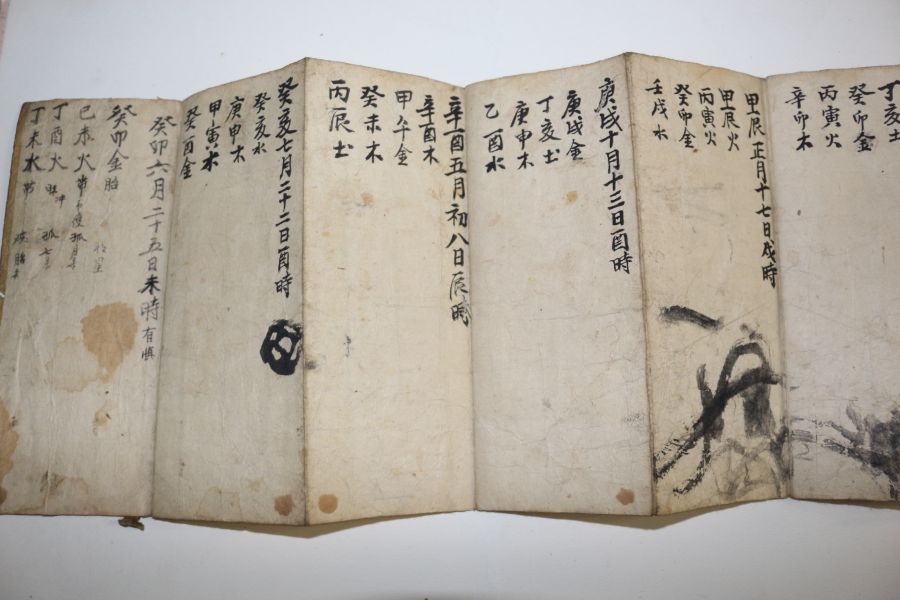 丁亥土
癸卯金
丙寅火
辛卯木
甲辰正月十七日戌時
甲辰火
丙寅火
癸卯金
壬戌水
庚戌十月十三日酉時
庚戌金
丁亥土
庚申木
乙酉水
辛酉五月初八日辰時
辛酉木
甲午金
癸未木
丙辰土
癸亥七月二十二日酉時
癸亥水
庚申木
甲寅水
癸酉金
癸卯六月二十五日未時 有
癸卯金 胎
己未火 帶
丁酉火 孤
丁未水 帶